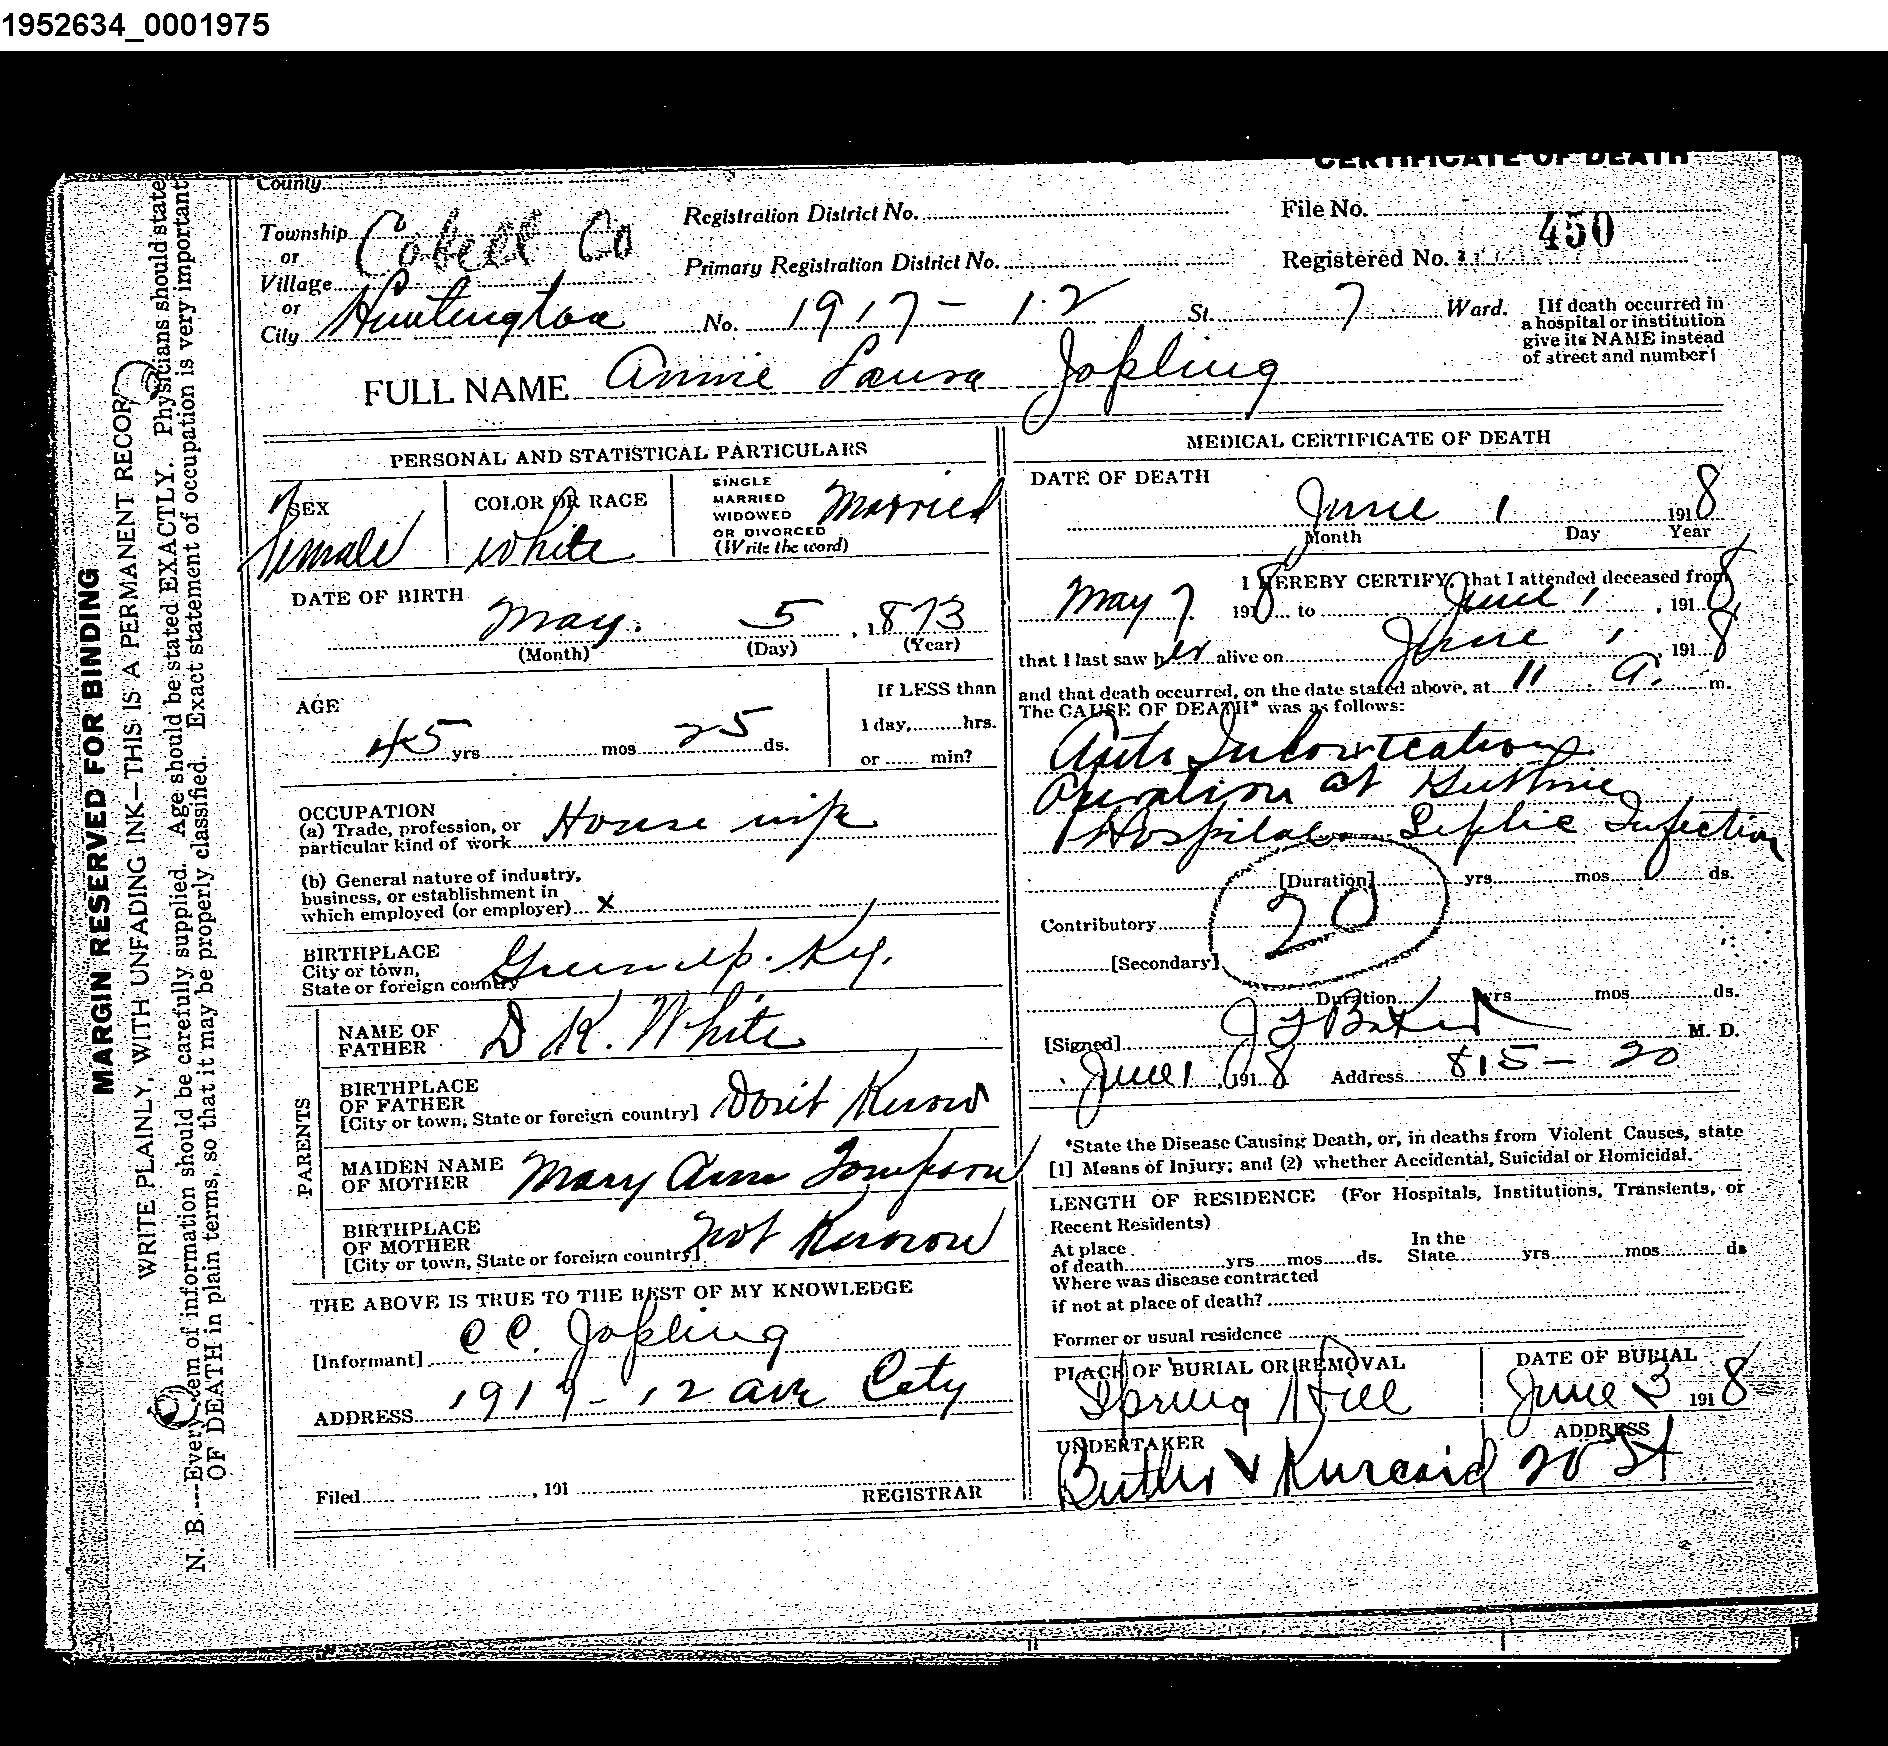 1952634_0001975
CERTIFICATE OF DEATH
County
Township Cabell Co
or
Village
or
City Huntington No. 1917 - 12 St. 7 Ward.
Registration District No.
Primary Registration District No.
File No.
450
Registered No.
[If death occurred in
a hospital or institution
give its NAME instead
of street and number]
FULL NAME Annie Laura Jopling
PERSONAL AND STATISTICAL PARTICULARS
SEX
Female
COLOR OR RACE
White
SINGLE
MARRIED
WIDOWED
OR DIVORCED
(Write the word)
Married
DATE OF BIRTH
May 5, 1873
(Month) (Day) (Year)
AGE
45 yrs mos 25 ds.
If LESS than
1 day, hrs.
or min?
OCCUPATION
(a) Trade, profession, or
particular kind of work House wife
(b) General nature of industry,
business, or establishment in
which employed (or employer) x
BIRTHPLACE
City or town,
State or foreign country Greenup. Ky.
PARENTS
NAME OF
FATHER D K. White
BIRTHPLACE
OF FATHER
[City or town, State or foreign country] Don't Know
MAIDEN NAME
OF MOTHER Mary Ann Tompson
BIRTHPLACE
OF MOTHER
[City or town, State or foreign country] Not Known
THE ABOVE IS TRUE TO THE BEST OF MY KNOWLEDGE
[Informant] C C. Jopling
ADDRESS 1917 - 12 ave City
Filed , 191
REGISTRAR
MEDICAL CERTIFICATE OF DEATH
DATE OF DEATH
June 1 1918
Month Day Year
I HEREBY CERTIFY, that I attended deceased from
May 7 1918 to June 1, 1918
that I last saw her alive on June 1, 1918
and that death occurred, on the date stated above, at 11 A. m.
The CAUSE OF DEATH* was as follows:
Auto Intoxication
Operation at Guthrie
Hospital Septic Infection
[Duration] yrs mos ds.
20
Contributory
[Secondary]
Duration yrs mos ds.
[Signed] Baker M. D.
June 1, 1918 Address 815 - 20
*State the Disease Causing Death, or, in deaths from Violent Causes, state
[1] Means of Injury; and (2) whether Accidental, Suicidal or Homicidal.
LENGTH OF RESIDENCE (For Hospitals, Institutions, Transients, or
Recent Residents)
At place
of death yrs mos ds.
In the
State yrs mos ds
Where was disease contracted
if not at place of death?
Former or usual residence
PLACE OF BURIAL OR REMOVAL
Spring Hill
DATE OF BURIAL
June 3 1918
UNDERTAKER
Butler & Kincaid
ADDRESS
20 St
MARGIN RESERVED FOR BINDING
WRITE PLAINLY, WITH UNFADING INK—THIS IS A PERMANENT RECORD
N. B.—Every item of information should be carefully supplied. Age should be stated EXACTLY. Physicians should state
OF DEATH in plain terms, so that it may be properly classified. Exact statement of occupation is very important